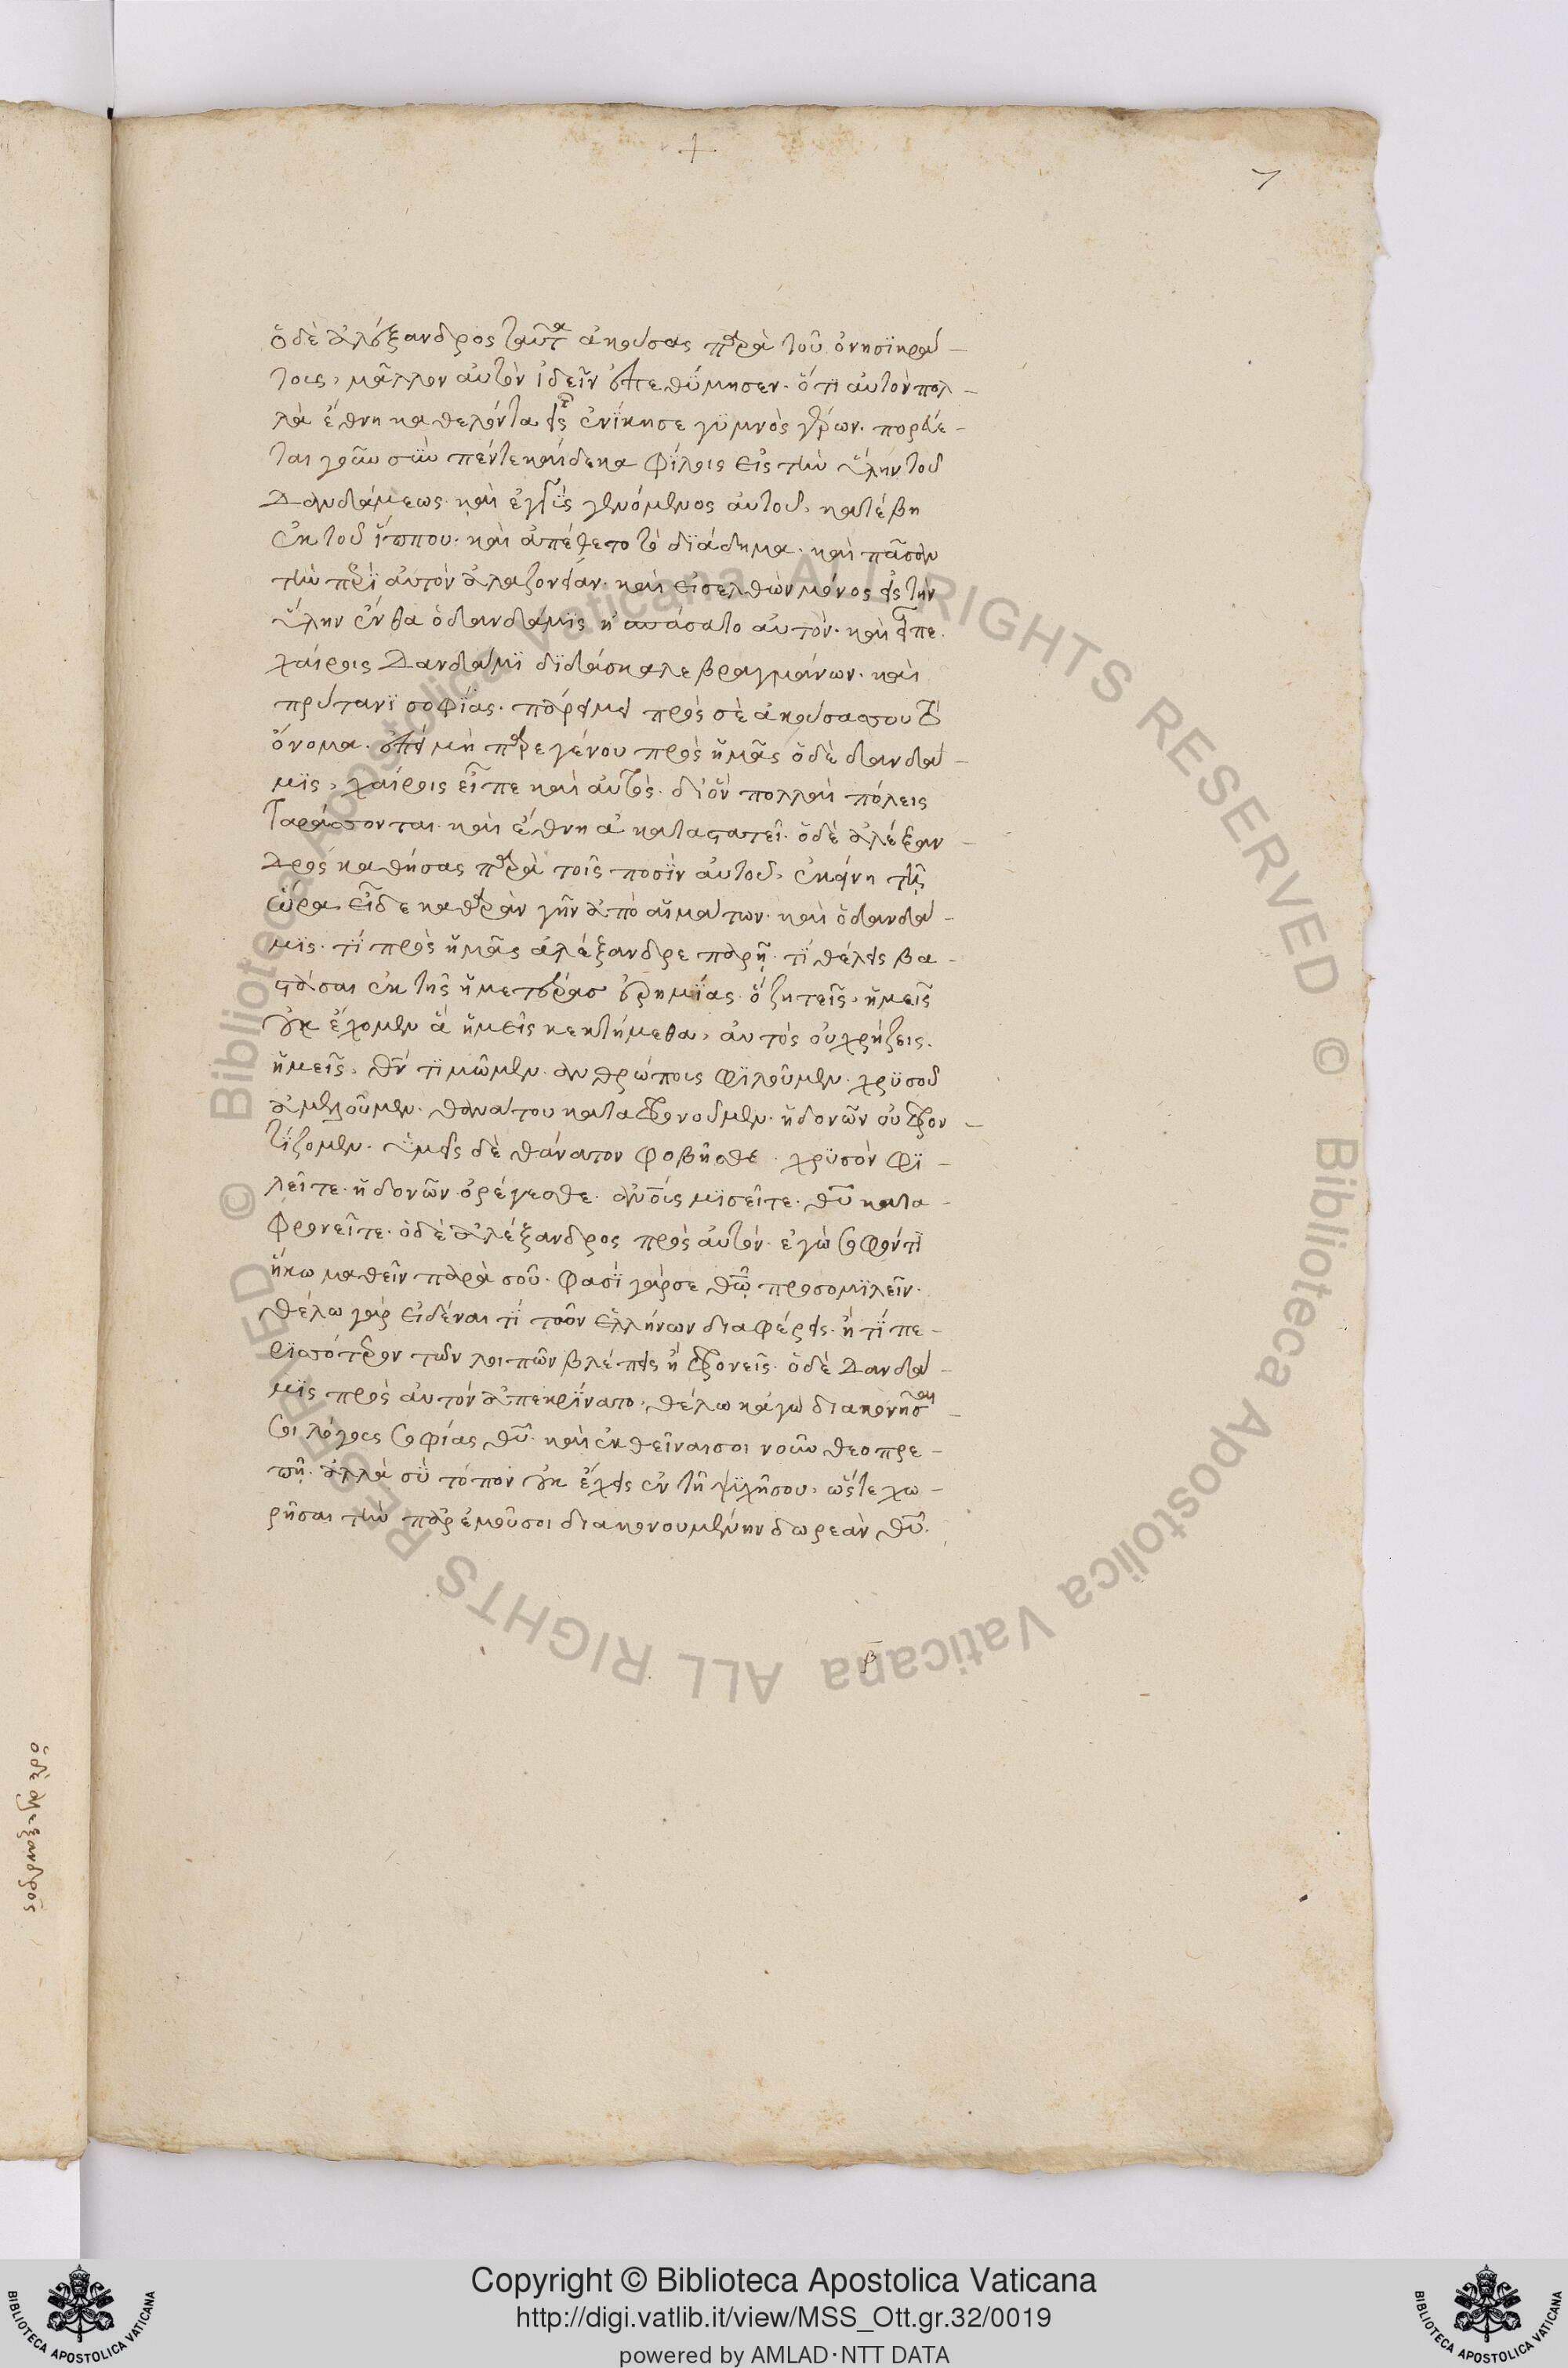 7
ὁ δὲ ἀλέξανδρος ταῦτα ἀκούσας παρὰ τοῦ ὀνησϊκρά-
τους, μᾶλλον αὐτὸν ἰδεῖν ἐπεθϋμησεν. ὅτι αὐτὸν πολ-
λὰ ἔθνη καθελόντα εἷς ἐνίκησε γυμνὸς γέρων. πορεύε-
ται γοῦν σὺν πέντε καίδεκα φίλοις εἰς τὴν ὕλην τοῦ
Δανδάμεως. καὶ ἐγγὺς γενόμενος αὐτοῦ, κατέβη
ἐκ τοῦ ἵππου. καὶ ἀπέθετο τὸ διάδημα. καὶ πᾶσαν
τὴν περὶ αὐτὸν ἀλαζονείαν. καὶ εἰσελθὼν μόνος εἰς τὴν
ὕλην ἔνθα ὁ δανδάμις ἠσπάσατο αὐτόν. καὶ εἶπε.
χαίροις Δανδάμϊ διδάσκαλε βραγμάνων. καὶ
πρύτανϊ σοφίας. πάρειμι πρὸς σὲ ἀκούσας σου τὸ
ὄνομα. ἐπεὶ μὴ παρεγένου πρὸς ἡμᾶς ὁ δὲ δανδά-
μϊς, χαίροις εἶπε καὶ αὐτὸς. δι' ὃν πολλαὶ πόλεις
ταράσσονται. καὶ ἔθνη ἀκαταστατεῖ. ὁ δὲ ἀλέξαν-
Δρος καθήσας παρὰ τοῖς ποσὶν αὐτοῦ, ἐκείνη τῇ
ὥρα εἶδε καθαρὰν γῆν ἀπὸ αἱμάτων. καὶ ὁ δανδά-
μις. τί πρὸς ἡμᾶς ἀλέξανδρε παρῇ. τί θέλεις βα-
στάσαι ἐκ τῆς ἡμετέρας ἐρημίας. ὃ ζητεῖς, ἡμεῖς
οὐκ ἔχομεν ἃ ἡμεῖς κεκτήμεθα, αὐτὸς οὐ χρήζεις.
ἡμεῖς, θν τιμῶμεν. ἀνθρώποις φιλοῦμεν. χρυσοῦ
ἀμελοῦμεν. θανάτου καταφρονοῦμεν. ἡδονῶν οὐ φρον-
τίζομεν. ὑμεῖς δὲ θάνατον φοβῆσθε. χρυσὸν φι-
λεῖτε. ἡδονῶν ὀρέγεσθε. ἀνους μισεῖτε. θυ κατα-
φρονεῖτε. ὁ δὲ ἀλέξανδρος πρὸς αὐτόν. ἐγὼ σοφόν τι
ἥκω μαθεῖν παρὰ σοῦ. φασὶ γάρ σε θω προσομιλεῖν.
θέλω γὰρ εἰδέναι τί τῶν ἑλλήνων διαφέρεις. ἢ τί πε-
ρισσότερον τῶν λοιπῶν βλέπεις ἢ φρονεῖς. ὁ δὲ Δανδά-
μϊς πρὸς αὐτὸν ἀπεκρίνατο, θέλω κἀγὼ διακονῆσαι
σοι λόγους σοφίας θυ. καὶ ἐνθεῖναι σοι νοῦν θεοπρε-
πῆ. ἀλλὰ σὺ τόπον οὐκ ἔχεις ἐν τῇ ψυχῇ σου, ὥστε χω-
ρῆσαι τὴν παρ' ἐμοῦ σοι διακονουμένην δωρεὰν θυ.
β
ὁ δὲ ἀλέξανδρος
Copyright © Biblioteca Apostolica Vaticana
http://digi.vatlib.it/view/MSS_Ott.gr.32/0019
powered by AMLAD·NTT DATA
BIBLIOTECA APOSTOLICA VATICANA
BIBLIOTECA APOSTOLICA VATICANA
© Biblioteca Apostolica Vaticana ALL RIGHTS RESERVED © Biblioteca Apostolica Vaticana ALL RIGHTS RESERVED